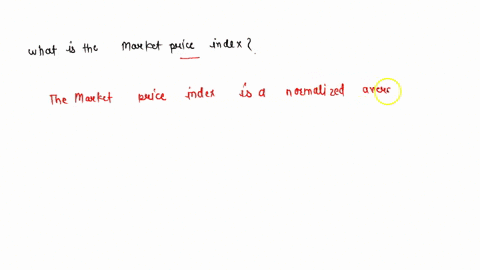 what is the market price index?
The Market price index is a normalized aver